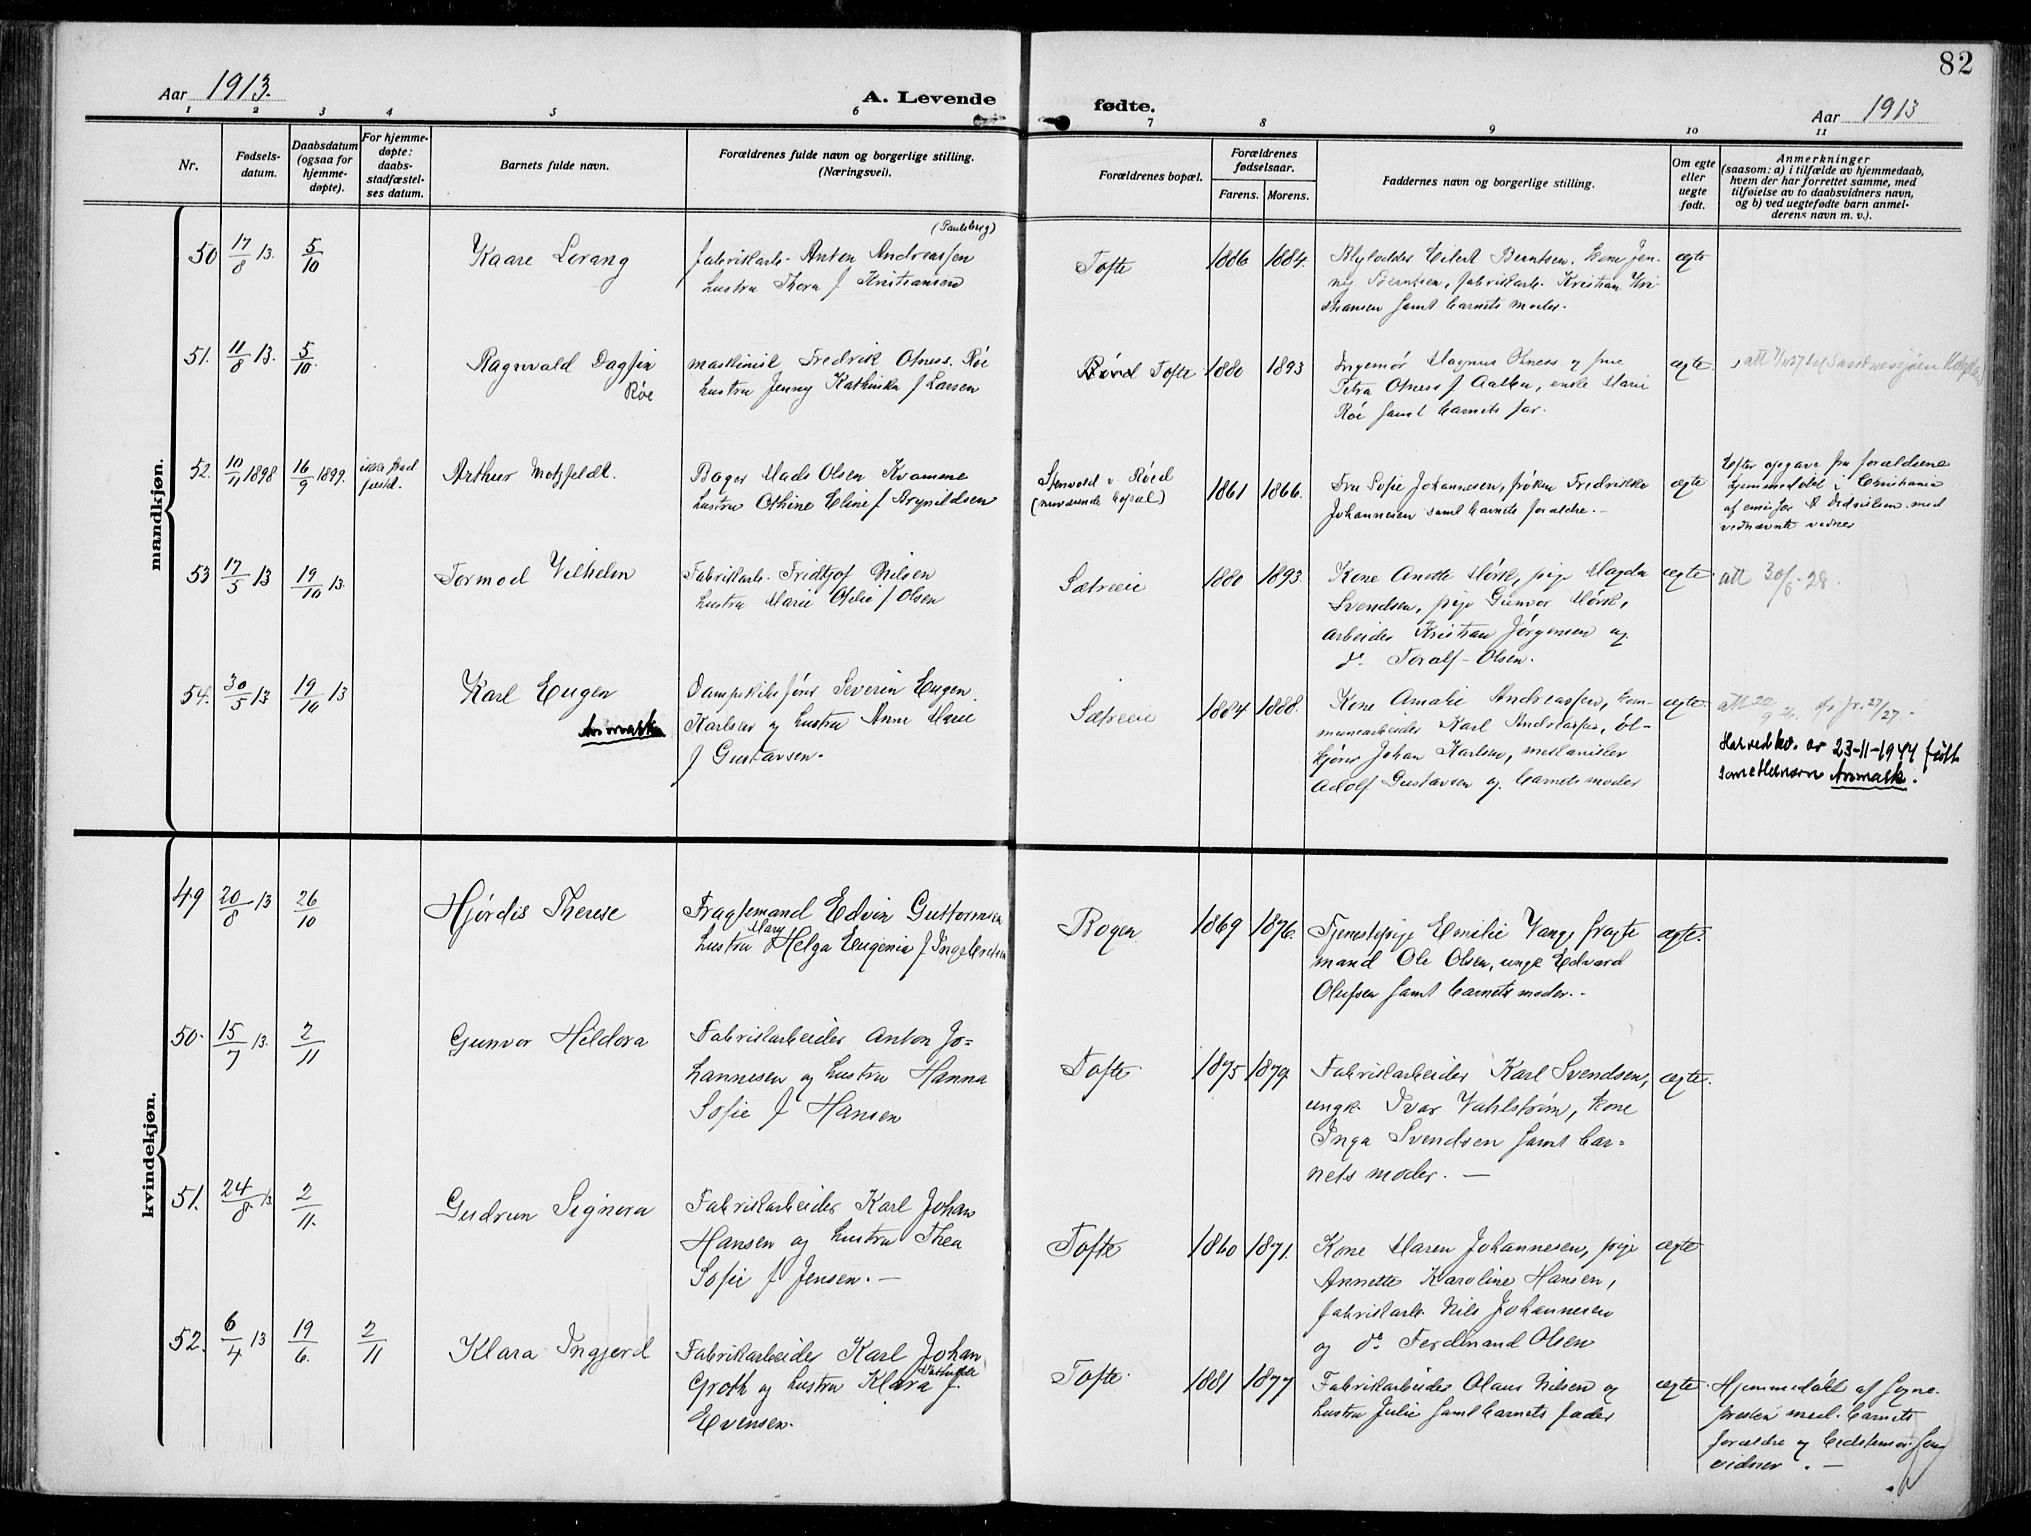 82
Aar 1913.
A. Levende
fødte.
Aar 1913
1 2 3 4 5 6 7 8 9 10 11
Nr.
Fødsels-
datum.
Daabsdatum
(ogsaa for
hjemme-
døpte).
For hjemme-
døpte:
daabs-
stadfæstel-
ses datum.
Barnets fulde navn.
Forældrenes fulde navn og borgerlige stilling.
(Næringsvei).
Forældrenes bopæl.
Forældrenes
fødselsaar.
Farens. Morens.
Faddernes navn og borgerlige stilling.
Om egte
eller
uegte
født.
Anmerkninger
(saasom: a) i tilfælde av hjemmedaab,
hvem der har forrettet samme, med
tilføielse av to daabsvidners navn,
og b) ved uegtefødte barn anmel-
derens navn m. v.).
mandkjøn.
50 17/8 13. 5/10 Kaare Lorang
(Paulsberg)
fabrikarb. Anton Andreassen
hustru Thora f Kristiansen
Tofte 1886 1884.
Blylodder Eilert Berntsen, kone Jen-
ny Berntsen, fabrikarb. Kristian Kri
stiansen samt barnets moder.
ægte
51. 11/8 13. 5/10. Ragnvald Dagfin
Röe
maskinist Fredrik Otness Röe
hustru Jenny Kathinka f Larsen
Tofte 1880 1893
Ingeniør Magnus Otness og frue
Petra Otness f Aalben, enke Marie
Röe samt barnets far.
ægte.
52. 10/11 1898 16/9 1899. Arthur Motzfeldt.
Bager Mads Olsen Kvamme
hustru Othine Eline f Arynildsen
Stenvold v Röed
(nuværende bopæl)
1861 1866.
Fru Sofie Johannesen, frøken Fredrikke
Johannesen samt barnets forældre. -
ægte
Efter opgave fra forældrene
hjemmedøbt i Christiania
af emisjær Didriksen med
vednævnte vidner
53 17/5 13 19/10 13. Tormod Vilhelm
Fabrikarb. Fridtjof Nilsen
hustru Marie Ofelie f Olsen
Sætreeie 1880 1893.
Kone Anette Mörk, pige Magda
Svendsen, pige Gunvor Mörk,
arbeider Kristian Jørgensen og
do. Toralf Olsen.
ægte.
att 30/6-28.
54. 30/5 13 19/10 13 Karl Eugen
Aronmark
Dampskibsfører Severin Eugen
Karlsen og hustru Anne Marie
f Gustavsen.
Sætreeie 1884 1888.
Kone Amalie Andreassen, kom-
munearbeider Karl Andreassen, öl-
kjører Johan Karlsen, mekaniker
Adolf Gustavsen og barnets moder
ægte.
Har ved kv. av 23-11-1944 født
kvindekjøn.
49 20/8 13 26/10 Hjørdis Therese
Fragtemand Edvin Guttormsen
Mary
hustru Helga Eugenia f Ingebretsen
Bogen 1869 1876.
Tjenestepige Emilie Vang, fragte
mand Ole Olsen, ungk Edvard
Olufsen samt barnets moder.
ægte.
50. 15/7 13. 2/11 Gunvor Hildora
Fabrikarbeider Anton Jo-
hannesen og hustru Hanna
Sofie f Hansen
Tofte 1875 1879.
Fabrikarbeider Karl Svendsen,
ungk. Ivar Vahlstrøm, kone
Inga Svendsen samt bar-
nets moder. -
ægte.
51. 24/8 13 2/11. Gudrun Signora
Fabrikarbeider Karl Johan
Hansen og hustru Thea
Sofie f Jensen. -
Tofte 1860 1871.
Kone Maren Johannesen, pige
Annette Karoline Hansen,
fabrikarb. Nils Johannesen
og do. Ferdinand Olsen
ægte
52. 6/4 13 19/6. 2/11 Klara Ingjerd
Fabrikarbeider Karl Johan
Groth og hustru Klara f.
Evensen.
Tofte. 1881 1877
Fabrikarbeider Olaus Nilsen og
hustru Julie samt barnets fader
ægte.
Hjemmedøbt af Sogne-
presten med barnets
forældre og
vidner. -